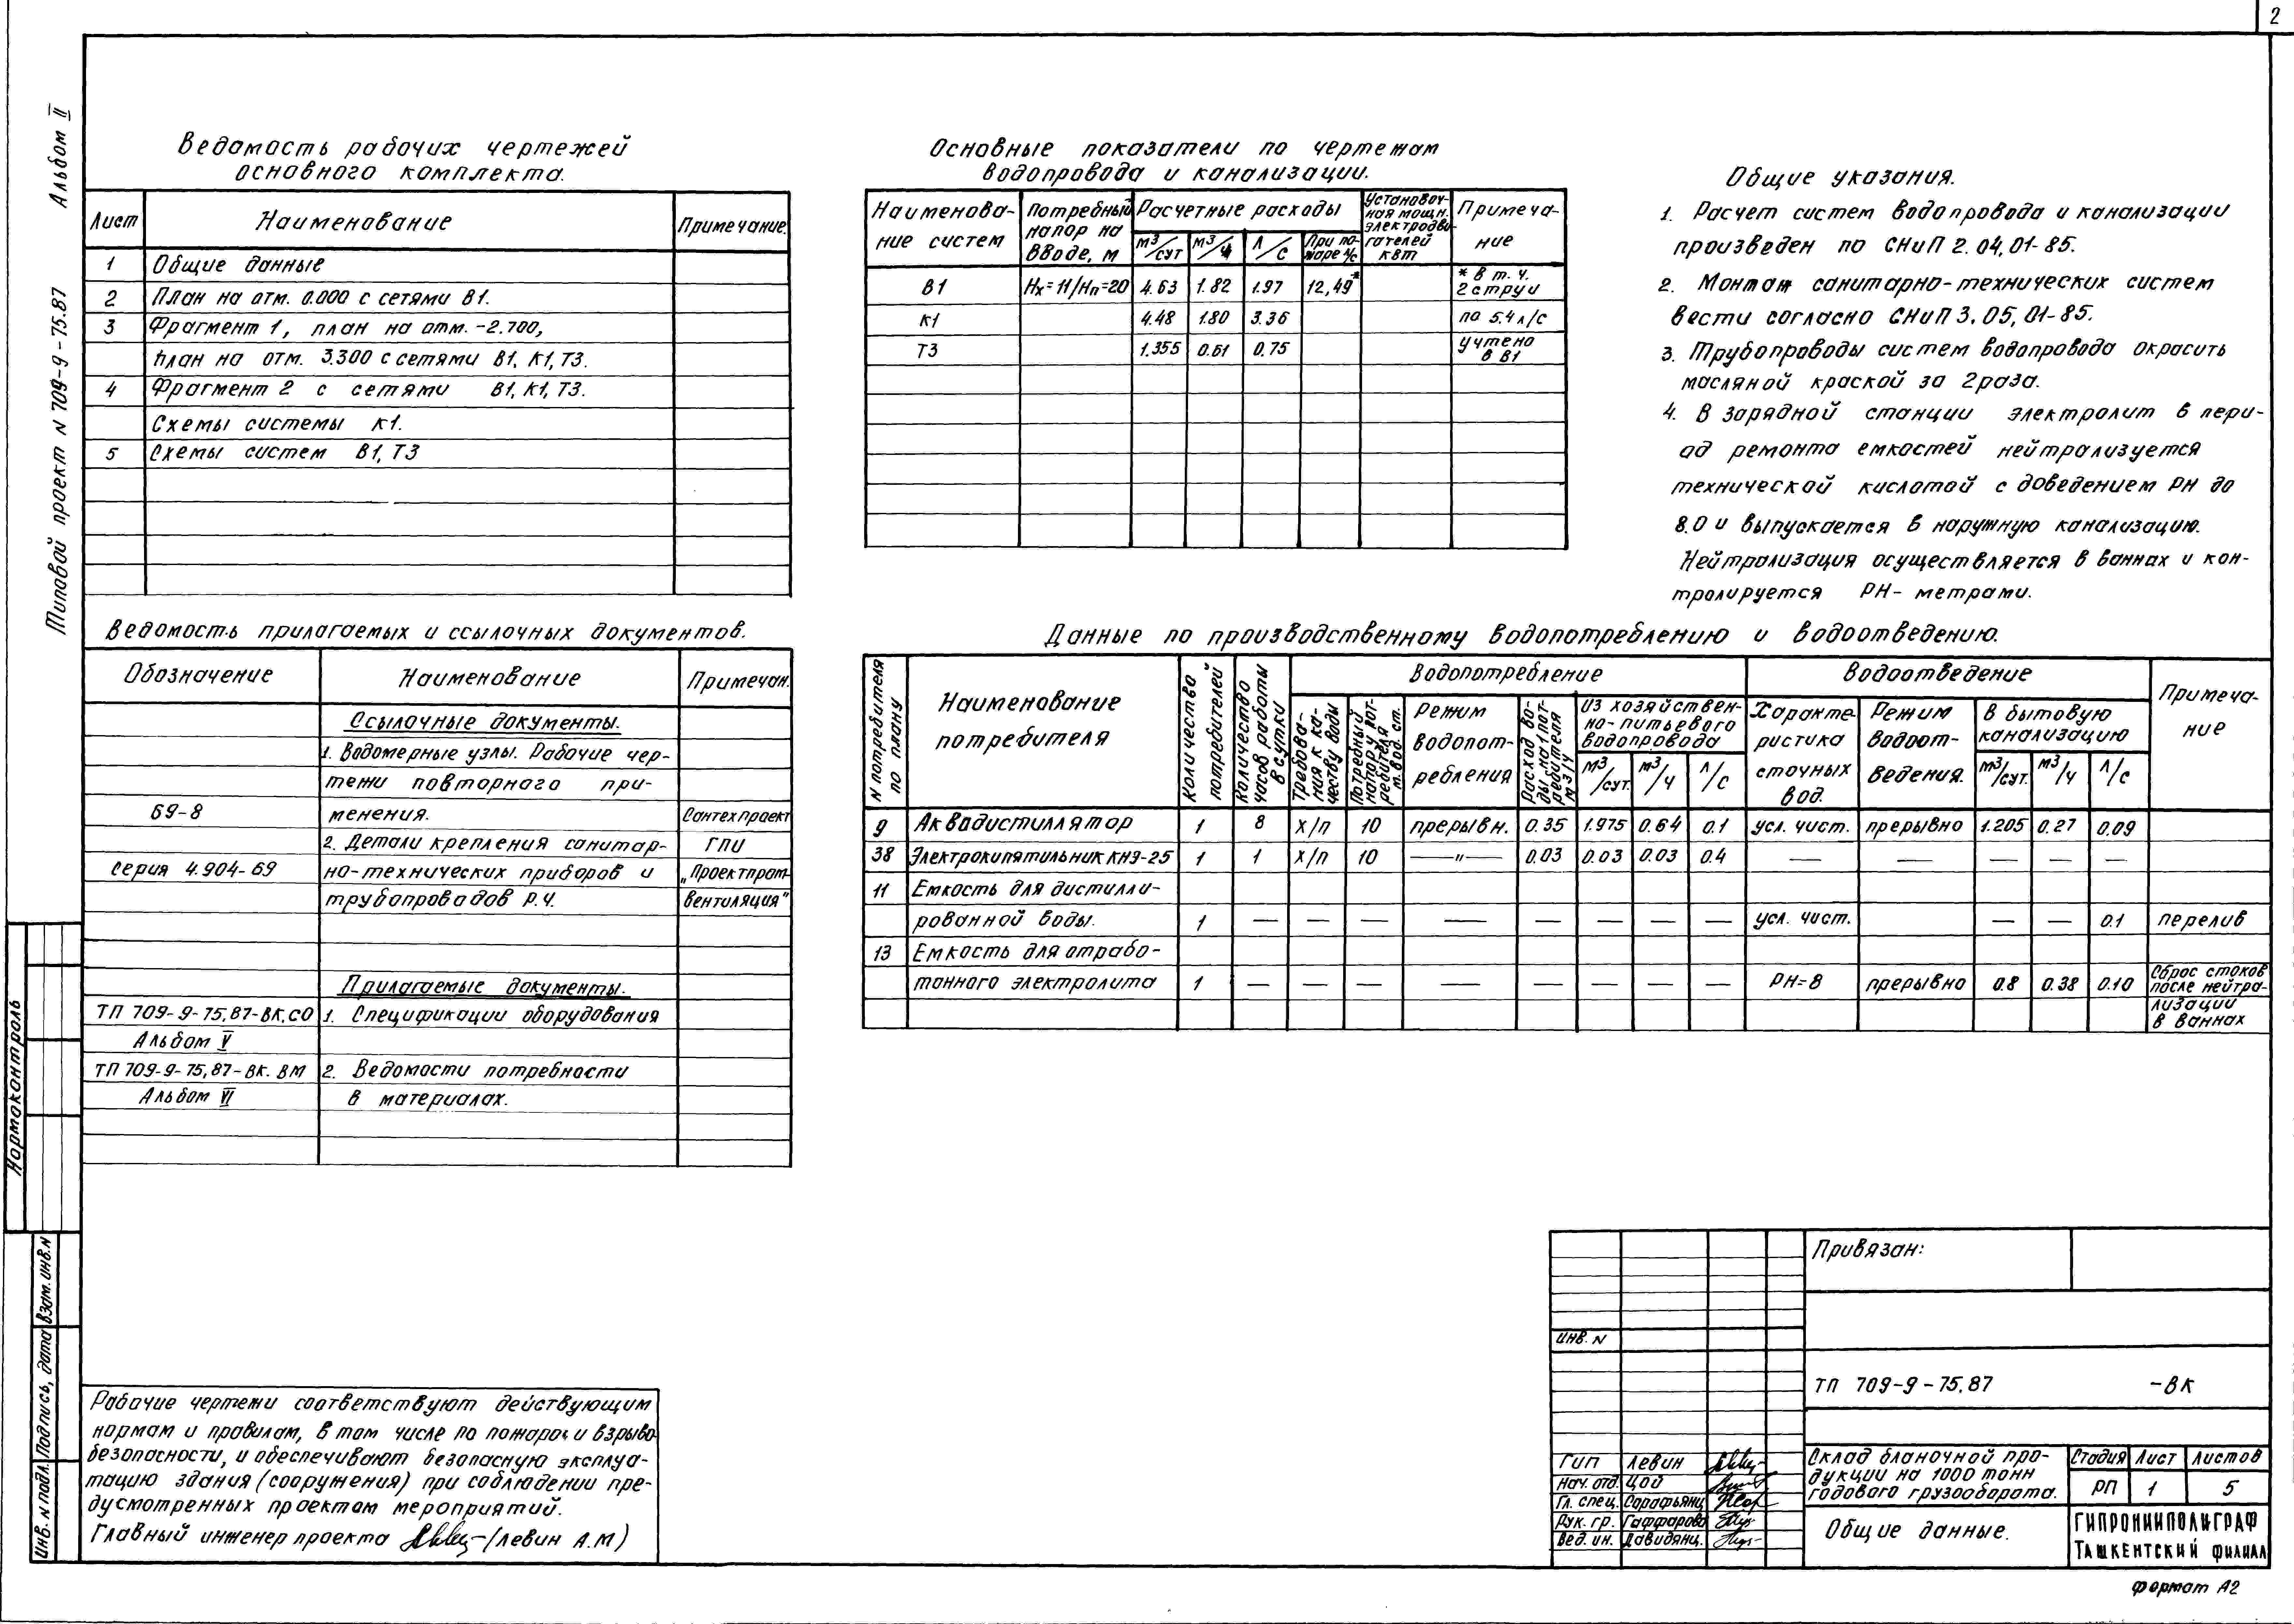 2
Альбом II
Типовой проект N 709-9-75.87
Ведомость рабочих чертежей
основного комплекта.
Лист Наименование Примечание
1 Общие данные
2 План на отм. 0.000 с сетями В1.
3 Фрагмент 1, план на отм. -2.700,
план на отм. 3.300 с сетями В1, К1, Т3.
4 Фрагмент 2 с сетями В1, К1, Т3.
Схемы системы К1.
5 Схемы систем В1, Т3
Основные показатели по чертежам
водопровода и канализации.
Наименова- Потребный Расчетные расходы Установоч- Примеча-
ние систем напор на ная мощн. ние
вводе, м м3/сут м3/ч л/с При по- электродви-
жаре л/с гателей
квт
В1 Нх=11/Нп=20 4.63 1.82 1.97 12,49* * в т. ч.
2 струи
К1 4.48 1.80 3.36 по 5.4 л/с
Т3 1.355 0.61 0.75 учтено
в В1
Общие указания.
1. Расчет систем водопровода и канализации
произведен по СНиП 2.04,01-85.
2. Монтаж санитарно-технических систем
вести согласно СНиП 3.05,01-85.
3. Трубопроводы систем водопровода окрасить
масляной краской за 2 раза.
4. В зарядной станции электролит в пери-
од ремонта емкостей нейтрализуется
технической кислотой с доведением РН до
8.0 и выпускается в наружную канализацию.
Нейтрализация осуществляется в ваннах и кон-
тролируется РН-метрами.
Ведомость прилагаемых и ссылочных документов.
Обозначение Наименование Примечан.
Ссылочные документы.
1. Водомерные узлы. Рабочие чер-
тежи повторного при-
69-8 менения. Сантехпроект
2. Детали крепления санитар- ГПИ
Серия 4.904-69 но-технических приборов и „Проектпром-
трубопроводов Р.Ч. вентиляция"
Прилагаемые документы.
ТП 709-9-75,87-ВК.СО 1. Спецификации оборудования
Альбом V
ТП 709-9-75,87-ВК.ВМ 2. Ведомости потребности
Альбом VI в материалах.
Данные по производственному водопотреблению и водоотведению.
N потребителя по плану
Наименование потребителя
Количество потребителей
Количество часов работы в сутки
Водопотребление
Требова-ния к ка-честву воды
Потребный напор у пот-ребителя м. вод. ст.
Режим водопот-ребления
Расход во-ды на 1 пот-ребителя м3/ч
Из хозяйствен-но-питьевого водопровода
м3/сут. м3/ч л/с
Водоотведение
Характе-ристика сточных вод.
Режим водоот-ведения.
В бытовую канализацию
м3/сут. м3/ч л/с
Примеча-ние
9 Аквадистиллятор 1 8 х/п 10 прерывн. 0.35 1.975 0.64 0.1 усл. чист. прерывно 1.205 0.27 0.09
38 Электрокипятильник КНЭ-25 1 1 х/п 10 —"— 0.03 0.03 0.03 0.4 — — — — —
11 Емкость для дистилли-
рованной воды. 1 — — — — — — — — усл. чист. — — 0.1 перелив
13 Емкость для отрабо-
танного электролита 1 — — — — — — — — РН=8 прерывно 0.8 0.38 0.10 Сброс стоков
после нейтра-
лизации
в ваннах
Нормоконтроль
Взам. инв. N
Подпись, дата
Инв. N подл.
Рабочие чертежи соответствуют действующим
нормам и правилам, в том числе по пожаро и взрыво
безопасности, и обеспечивают безопасную эксплуа-
тацию здания (сооружения) при соблюдении пре-
дусмотренных проектом мероприятий.
Главный инженер проекта (Левин А.М)
Привязан:
Инв. N
ТП 709-9-75.87 -ВК
ГИП Левин
Нач. отд. Цой
Гл. спец. Сарафьянц
Рук. гр. Гаффарова
Вед. ин. Давидянц.
Склад бланочной про-
дукции на 1000 тонн
годового грузооборота.
Стадия Лист Листов
РП 1 5
Общие данные.
ГИПРОНИИПОЛИГРАФ
Ташкентский филиал
Формат А2